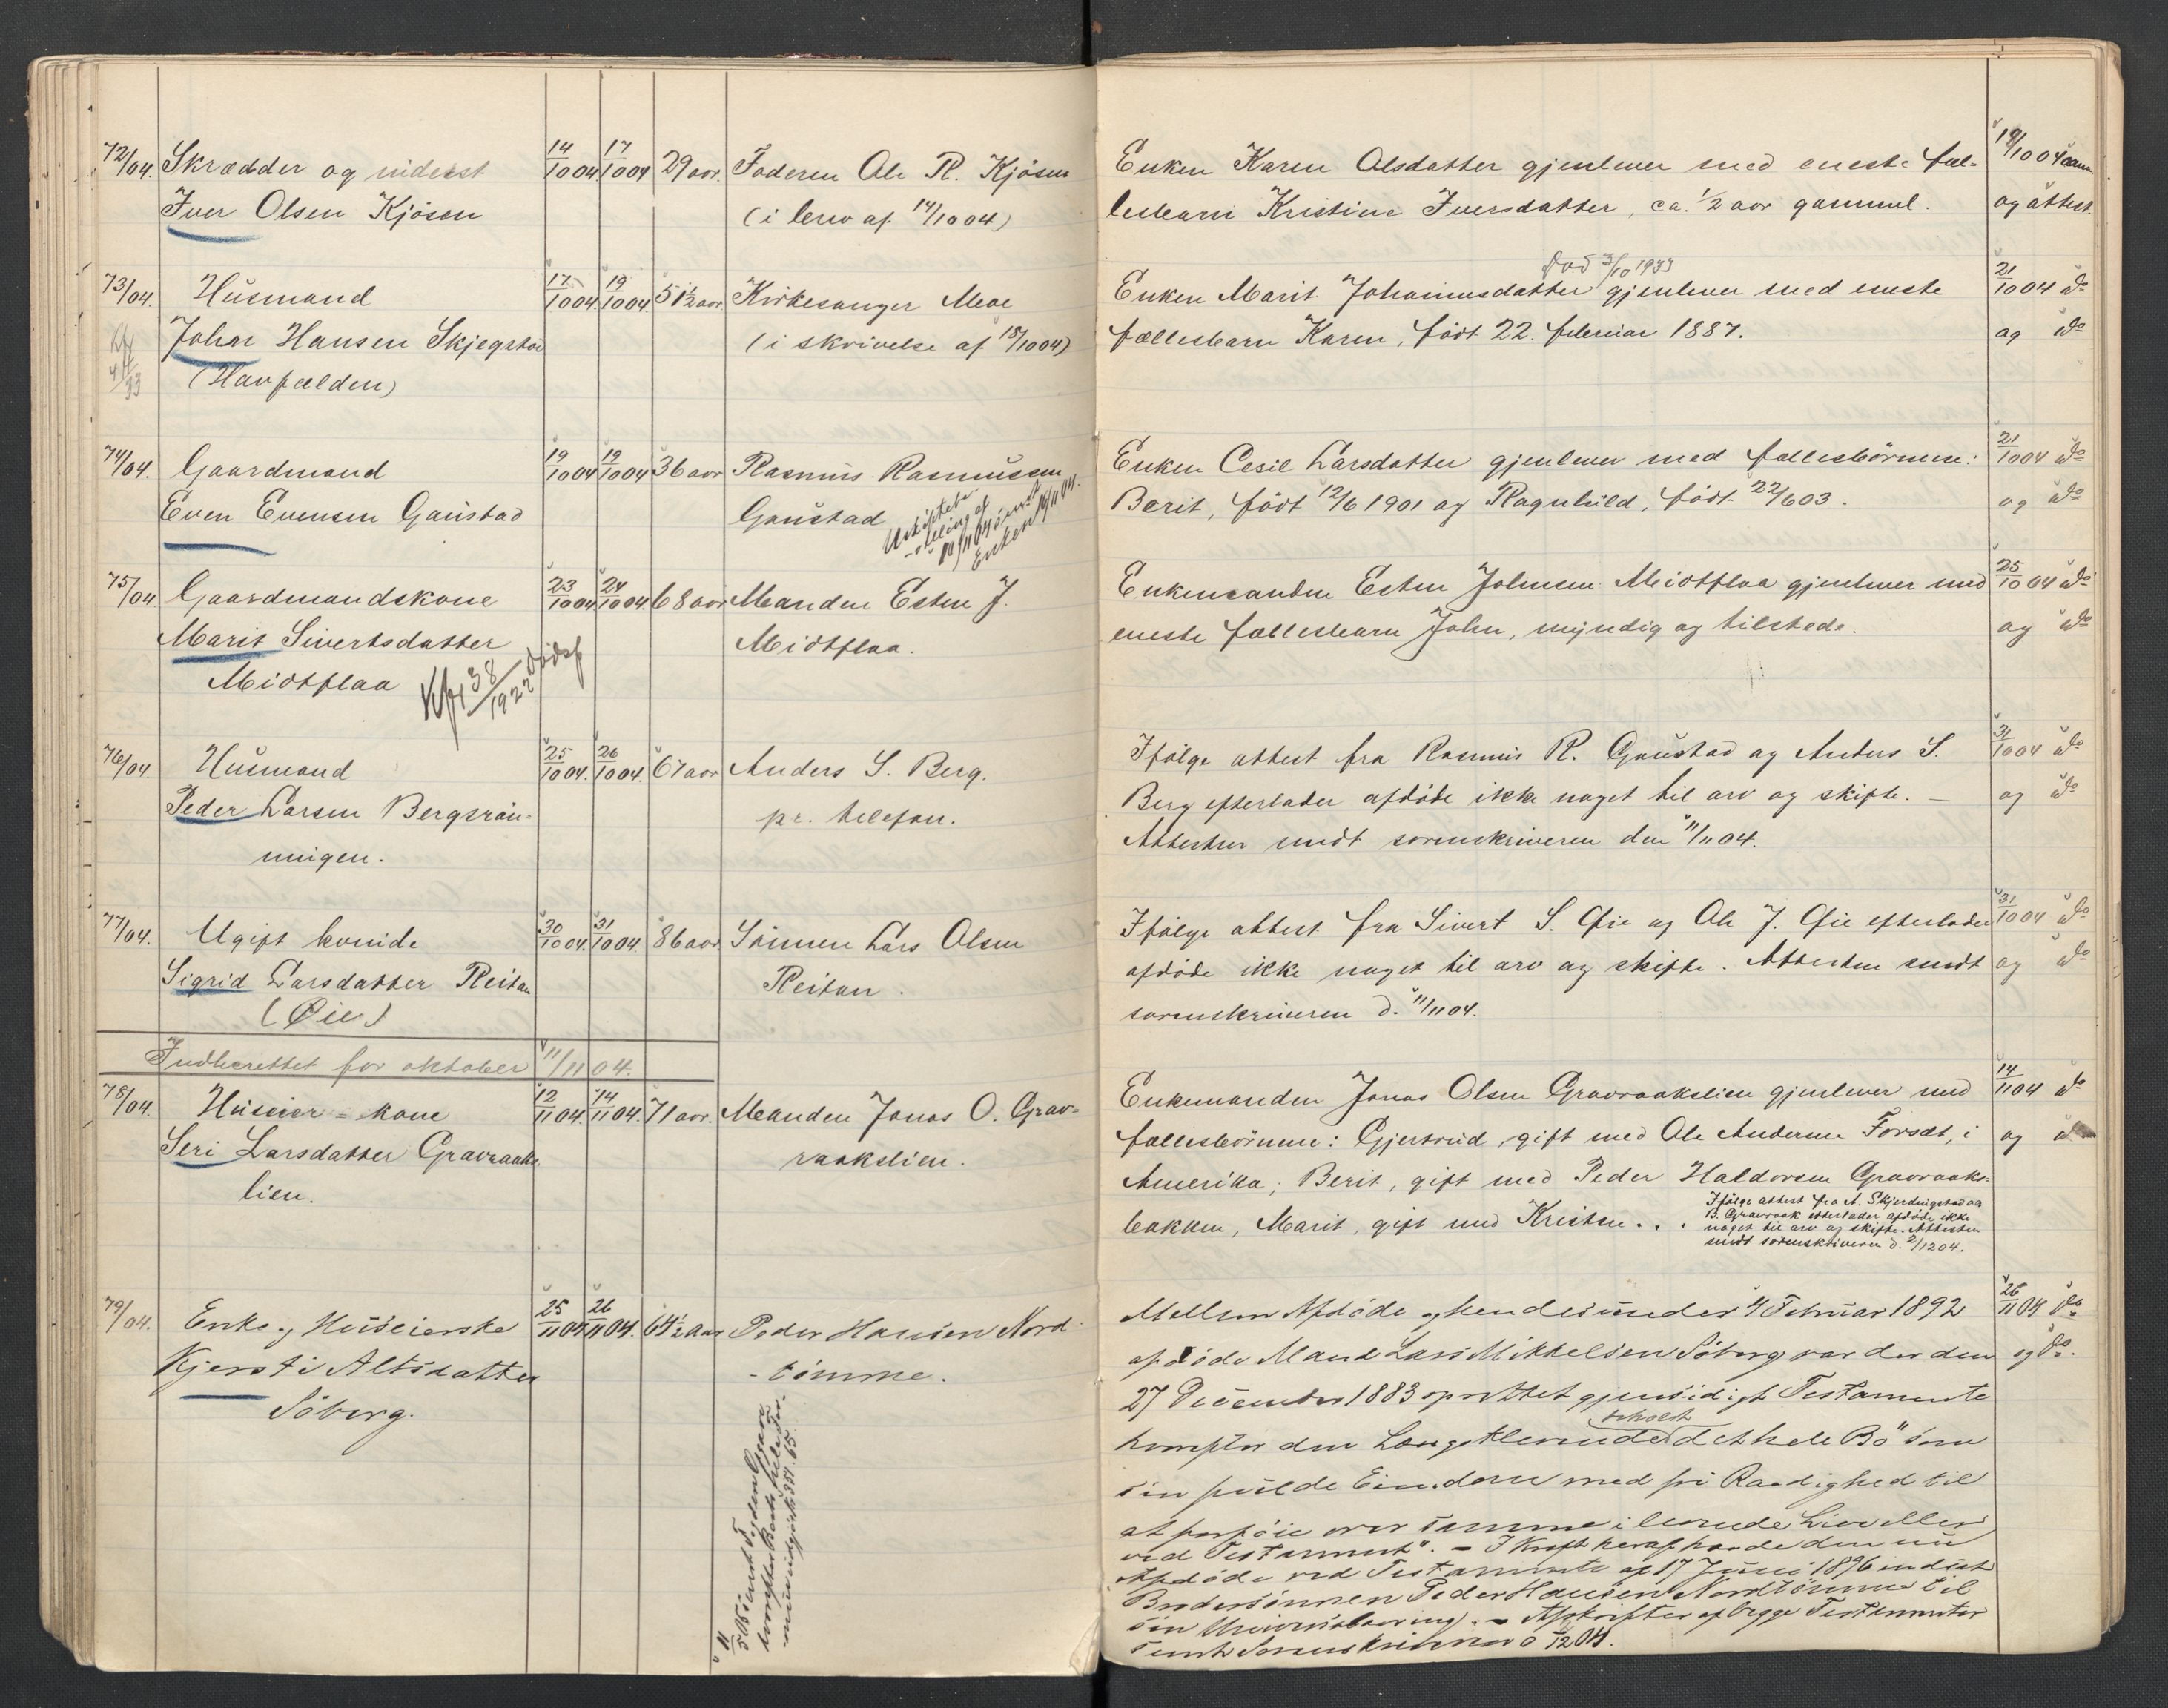 72/04. Skrædder og inderst 14/10 04 17/10 04 29 aar. Faderen Ole R. Kjösen
Iver Olsen Kjösen (i brev af 14/10 04)
Enken Karen Olsdatter gjenlever med eneste fæl- 19/10 04
lesbarn Kristine Iversdatter, ca. 1/2 aar gammel. og attest.
73/04. Husmand 17/10 04 19/10 04. 51 1/2 aar Kirkesanger Moe
John Hansen Skjegstad (i skrivelse af 18/10 04)
(Havfælden)
død 3/10 1933
Enken Marit Johannesdatter gjenlever med eneste 21/10 04 do
fællesbarn Karen, født 22. februar 1887. og do
74/04. Gaardmand 19/10 04 19/10 04 36 aar Rasmus Rasmussen
Even Evensen Gaustad Gaustad
Enken 19/11 04.
Enken Cesil Larsdatter gjenlever med fællesbörnene: 21/10 04 do
Berit, født 12/6 1901 og Ragnhild, født 22/6 03. og do
75/04 Gaardmandskone 23/10 04 24/10 04. 68 aar Manden Esten J.
Marit Sivertsdatter Midtflaa.
Midtflaa
38/1922 dødsf
Enkemanden Esten Johnsen Midtflaa gjenlever med 25/10 04 do
eneste fællesbarn John, myndig og tilstede. og do
76/04. Husmand 25/10 04. 26/10 04. 67 aar Anders S. Berg.
Peder Larsen Bergsrön- pr. telefon.
ningen.
Ifölge attest fra Rasmus R. Gaustad og Anders S. 31/10 04 do
Berg efterlader afdöde ikke noget til arv og skifte. — og do
Attesten sendt sorenskriveren den 11/11 04.
77/04. Ugift kvinde 30/10 04. 31/10 04. 86 aar Sönnen Lars Olsen
Sigrid Larsdatter Reitan Reitan.
(Øie)
Ifölge attest fra Sivert S. Øie og Ole J. Øie efterlader 31/10 04 do
afdöde ikke noget til arv og skifte. Attesten sendt og do
sorenskriveren d. 11/11 04.
Indberettet for oktober 11/11 04.
78/04. Huseier-kone 12/11 04. 14/11 04. 71 aar. Manden Jonas O. Grav-
Seri Larsdatter Gravraaks- raakslien.
lien.
Enkemanden Jonas Olsen Gravraakslien gjenlever med 14/11 04 do
fællesbörnene: Gjertrud, gift med Ole Andersen Forsdt, i og do
Amerika; Berit, gift med Peder Haldorsen Gravraaks-
bakken, Marit, gift med Kristen . . .
Ifölge attest fra A. Skjerdingstad og
B. Gravraak efterlader afdöde ikke
noget til arv og skifte. Attesten
sendt sorenskriveren d. 2/12 04.
79/04. Enke og Huseierske 25/11 04 26/11 04. 64 1/2 aar Peder Hansen Nord-
Kjersti Altsdatter tömme.
Söberg.
Mellem Afdöde og hendes under 4 Februar 1892 26/11 04 do
afdöde Mand Lars Mikkelsen Söberg var der den og do.
27 December 1883 oprettet gjensidigt Testamente
beholdt
hvorefter den Længstlevende det hele Bo "som
sin fulde Eiendom med fri Raadighed til
at forföie over samme i levende Live eller
ved Testament". — I Kraft heraf havde den nu
Afdöde ved Testamente af 17 Juni 1896 indsat
Brodersönnen Peder Hansen Nordtömme til
sin Universalarving. — Afskrifter af begge Testamenter
sendt Sorenskriveren 12 04.